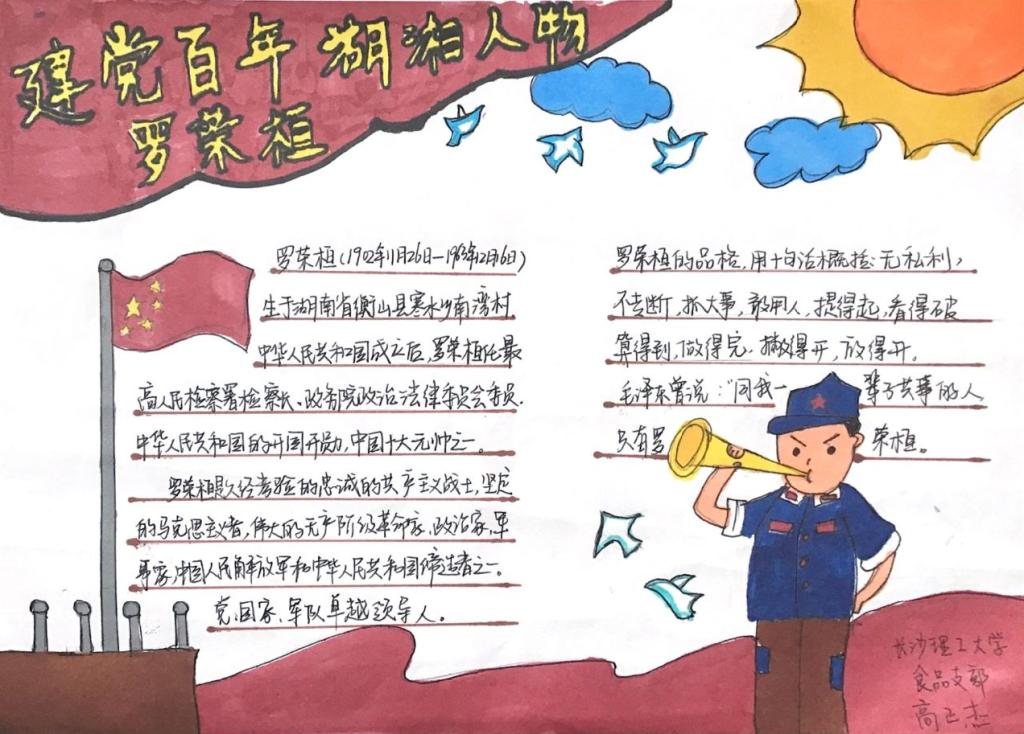 建党百年 湖湘人物
罗荣桓
罗荣桓(1902年11月26日—1963年12月16日)
生于湖南省衡山县寒水乡南湾村
中华人民共和国成立后,罗荣桓任最
高人民检察署检察长、政务院政治法律委员会委员.
中华人民共和国的开国元勋,中国十大元帅之一。
罗荣桓是久经考验的忠诚的共产主义战士,坚定
的马克思主义者,伟大的无产阶级革命家、政治家、军
事家,中国人民解放军和中华人民共和国缔造者之一。
党、国家、军队卓越领导人。
罗荣桓的品格,用十句话概括:无私利,
不专断,抓大事,敢用人,提得起,看得破
算得到,做得完.撇得开,放得开.
毛泽东曾说:"同我一辈子共事的人
只有罗荣桓。
长沙理工大学
食品支部
高正杰